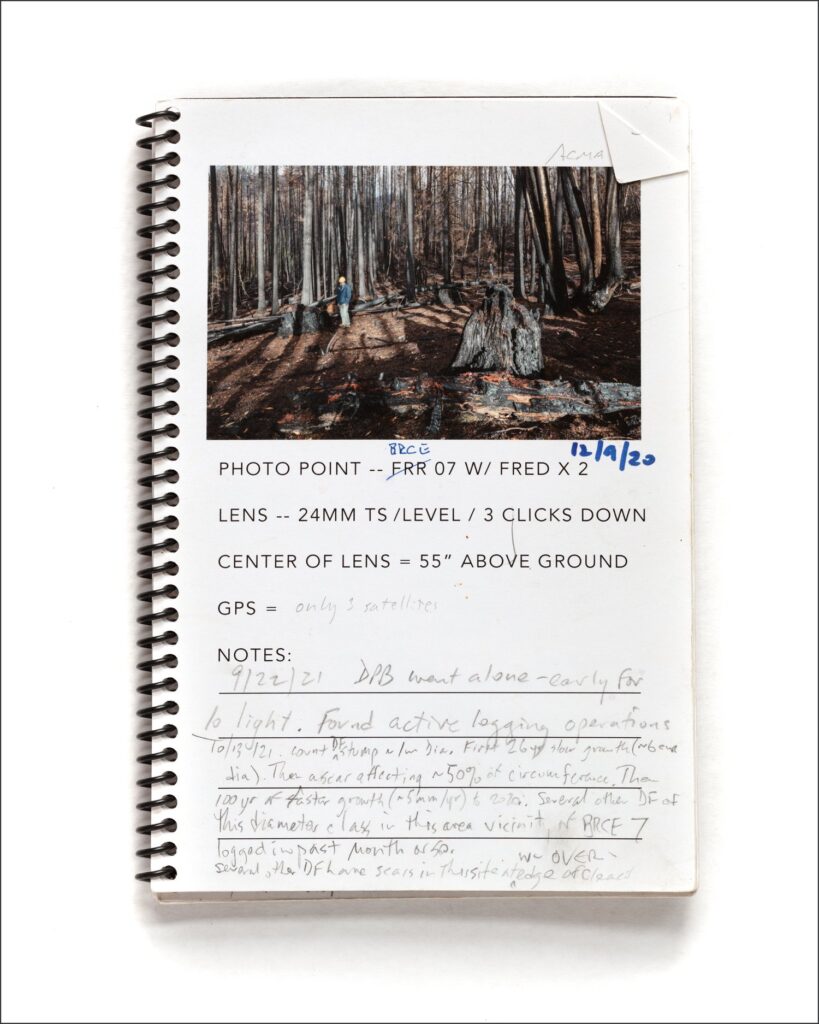 ACMA
BRCE 12/9/20
PHOTO POINT -- FRR 07 W/ FRED X 2
LENS -- 24MM TS /LEVEL / 3 CLICKS DOWN
CENTER OF LENS = 55” ABOVE GROUND
GPS = only 3 satellites
NOTES:
9/22/21 DPB went alone - early for
lo light. Found active logging operations
10/13/21. count DF stump w/ 1m Dia. First 26 yr slow growth (~6 cm
dia). Then a scar affecting ~50% of circumference. Then
100 yr of faster growth (~5mm/yr) to 2020. Several other DF of
this diameter class in this area vicinity of BRCE 7
logged in past month or so.
OVER
Several other DF have scars in this site edge of